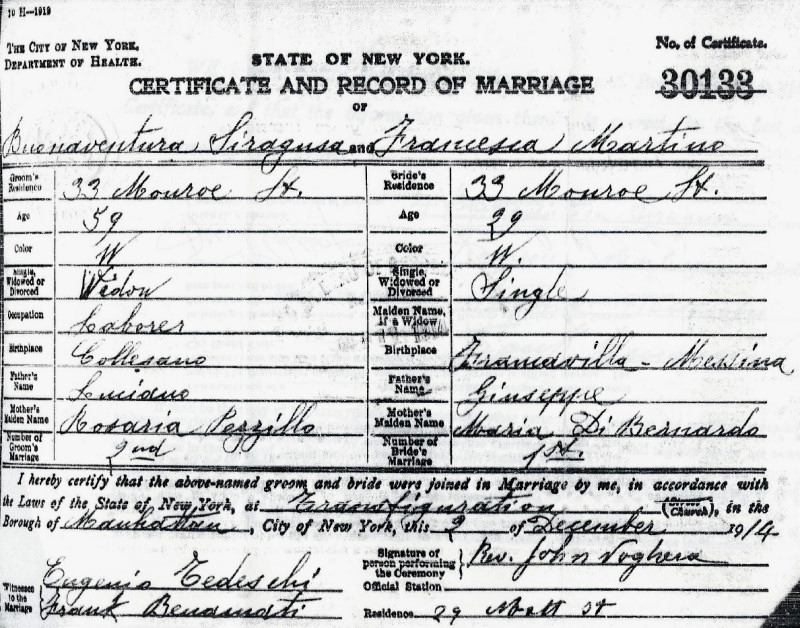 10 H—1919
THE CITY OF NEW YORK,
DEPARTMENT OF HEALTH.
No. of Certificate.
STATE OF NEW YORK.
CERTIFICATE AND RECORD OF MARRIAGE
30133
OF
Buenaventura Siragusa and Francesca Martino
Groom's Residence 33 Monroe St. Bride's Residence 33 Monroe St.
Age 59 Age 29
Color W Color W.
Single, Widowed or Divorced Widow Single, Widowed or Divorced Single
Occupation Laborer Maiden Name, if a Widow
Birthplace Collesano Birthplace Francavilla Messina
Father's Name Luciano Father's Name Giuseppe
Mother's Maiden Name Rosaria Pezzillo Mother's Maiden Name Maria Di Bernardo
Number of Groom's Marriage 2nd Number of Bride's Marriage 1st.
I hereby certify that the above-named groom and bride were joined in Marriage by me, in accordance with
the Laws of the State of New York, at Transfiguration (Church), in the
Borough of Manhattan City of New York, this 2 of December 1914
Witnesses to the Marriage Eugenio Tedeschi Signature of person performing the Ceremony Rev. John Voghera
Frank Benamati Official Station
Residence 29 Mott St